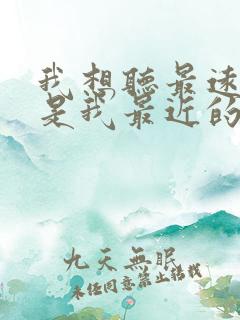 我想聽最遠
是我最近的
九天無眠
未经同意禁止转载